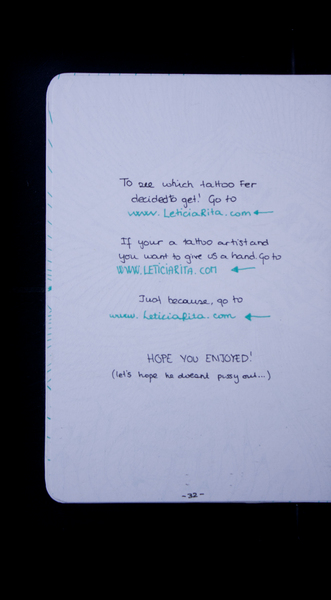 To see which tattoo Fer
decided to get! Go to
www.LeticiaRita.com ←
If your a tattoo artist and
you want to give us a hand. Go to
WWW.LETICIARITA.COM ←
Just because, go to
www.LeticiaRita.com ←
HOPE YOU ENJOYED!
(let's hope he doesnt pussy out...)
-32-